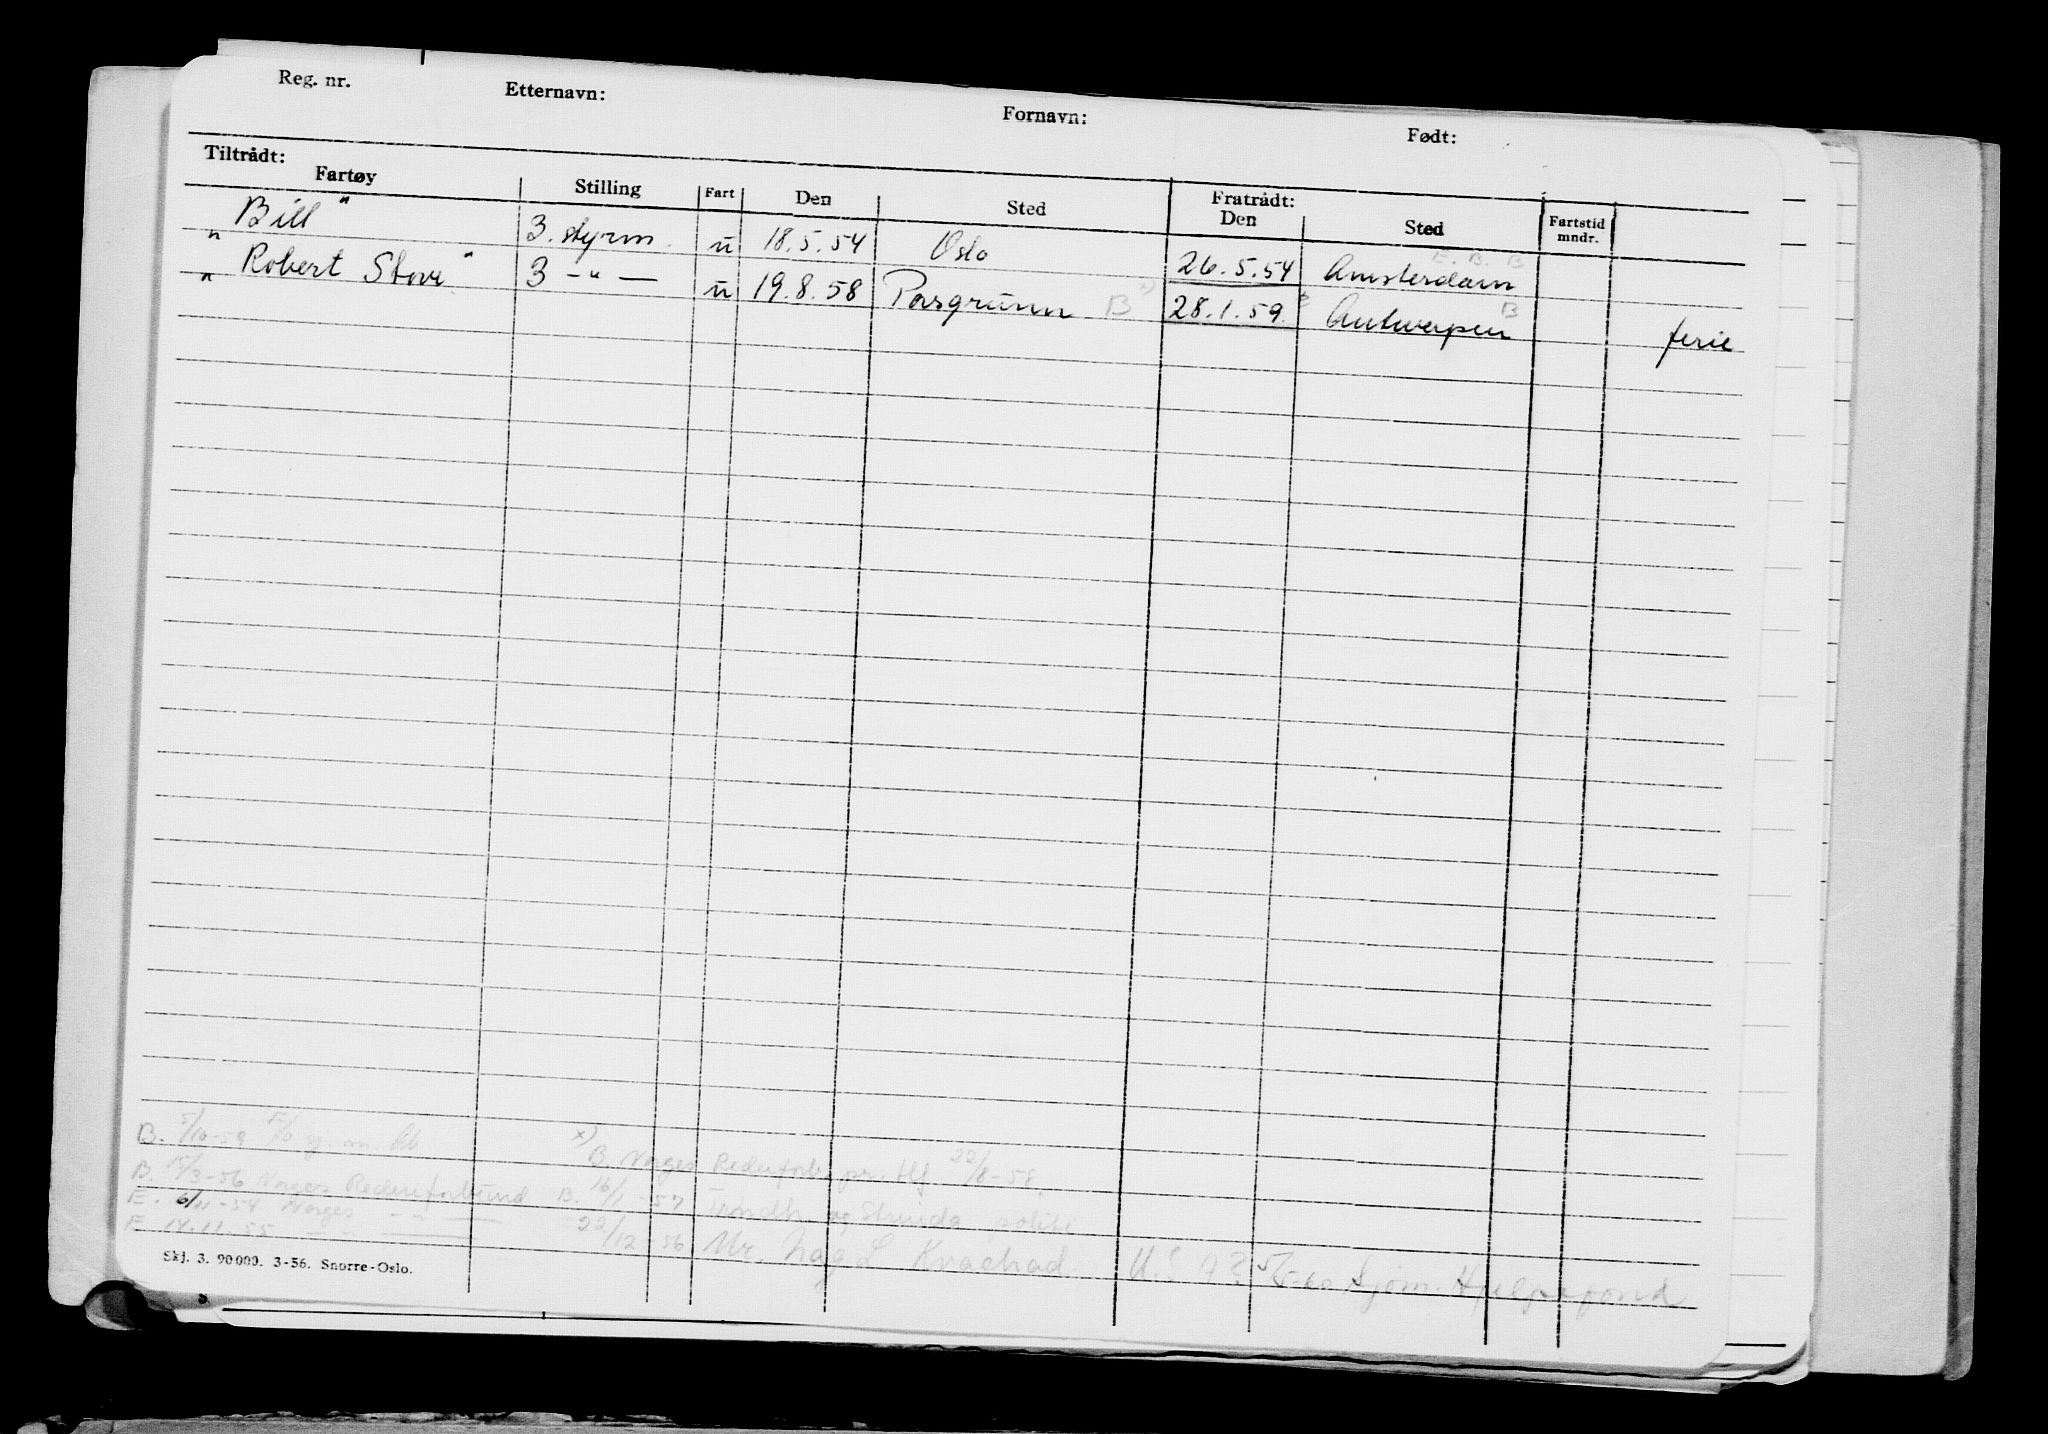 Reg. nr. Etternavn: Fornavn: Født:
Tiltrådt: Fratrådt:
Fartøy Stilling Fart Den Sted Den Sted Fartstid mndr.
"Bill" 3. styrm. u 18.5.54 Oslo 26.5.54 Amsterdam E. B. B
"Robert Stove" 3 -"- u 19.8.58 Porsgrunn B x) 28.1.59 Antwerpen B ferie
B. 5/10-59
x) B. Norges Rederforb. pr. Hf 22/8-58.
B. 15/3-56 Norges Rederiforbund B. 16/ -57 Trondh. og Strinda politi
E. 6/11-54 Norges -"-
22/12 56 Mr. U.S.A. Sjøm. Hjelpefond
E. 14.11.55 -"-
Skj. 3. 90000. 3-56. Snorre-Oslo.